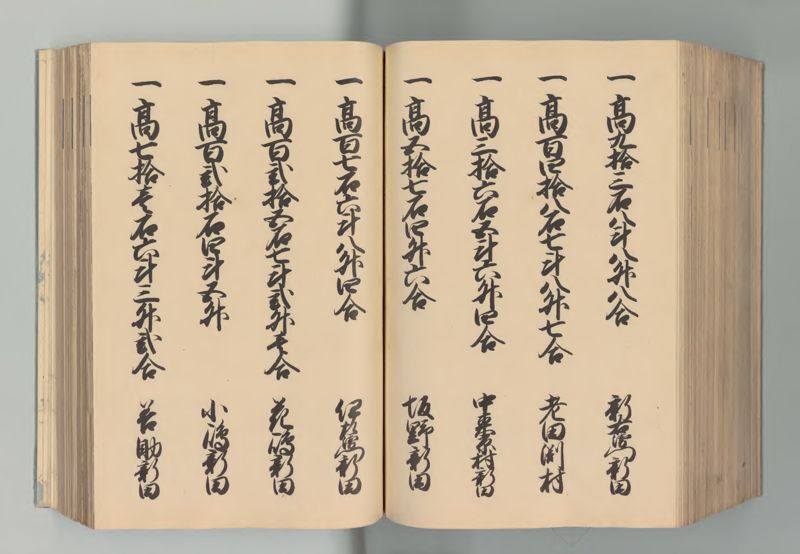 一高九拾三石八斗八升八合 新右衛門新田
一高百四拾八石七斗八升七合 老田渕村
一高三拾六石五斗六升四合 中桑村新田
一高五拾七石四升六合 坂野新田
一高百七石六斗八升四合 伊右衛門新田
一高百弐拾五石七斗弐升壱合 荒嶋新田
一高百弐拾石四斗五升 小嶋新田
一高七拾壱石六斗三升弐合 善助新田